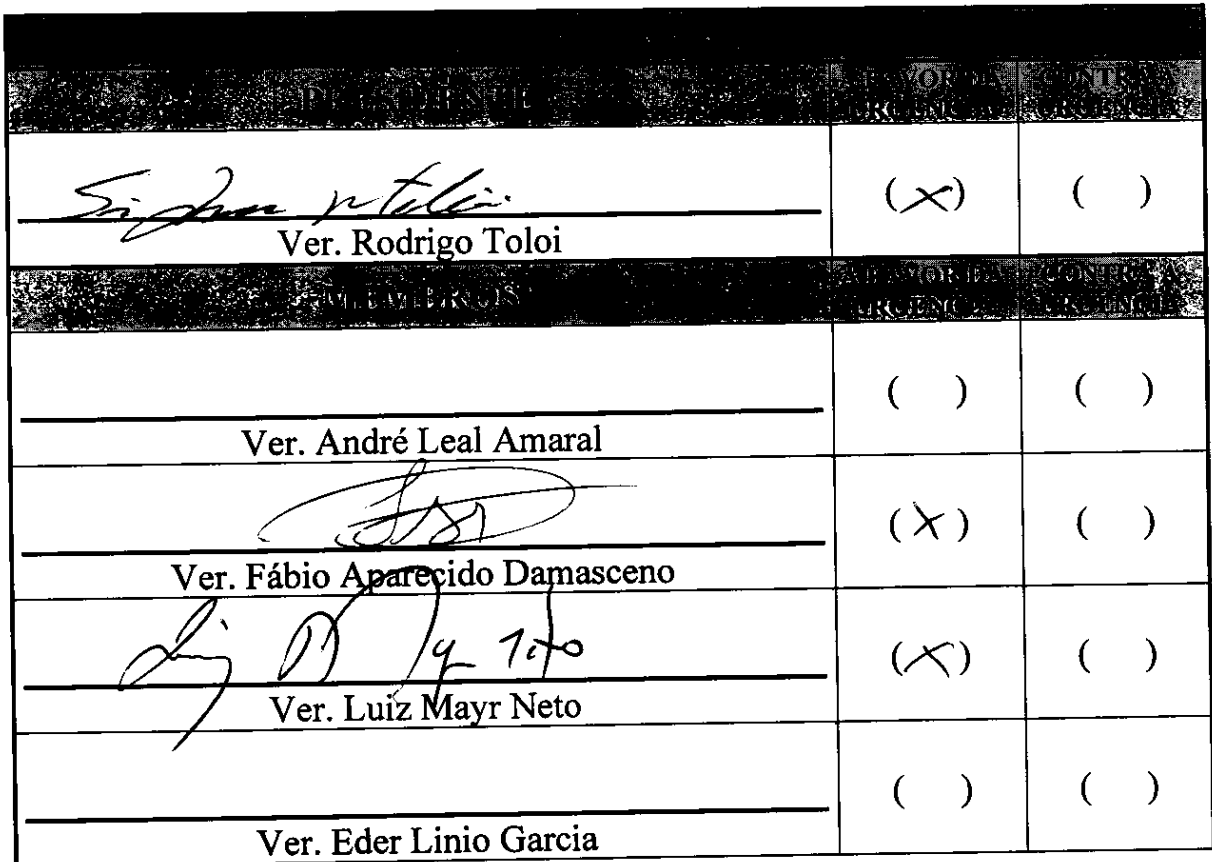 PRESIDENTE
A FAVOR DA URGÊNCIA
CONTRA A URGÊNCIA
(X) ( )
Ver. Rodrigo Toloi
MEMBROS
A FAVOR DA URGÊNCIA
CONTRA A URGÊNCIA
( ) ( )
Ver. André Leal Amaral
(X) ( )
Ver. Fábio Aparecido Damasceno
(X) ( )
Ver. Luiz Mayr Neto
( ) ( )
Ver. Eder Linio Garcia